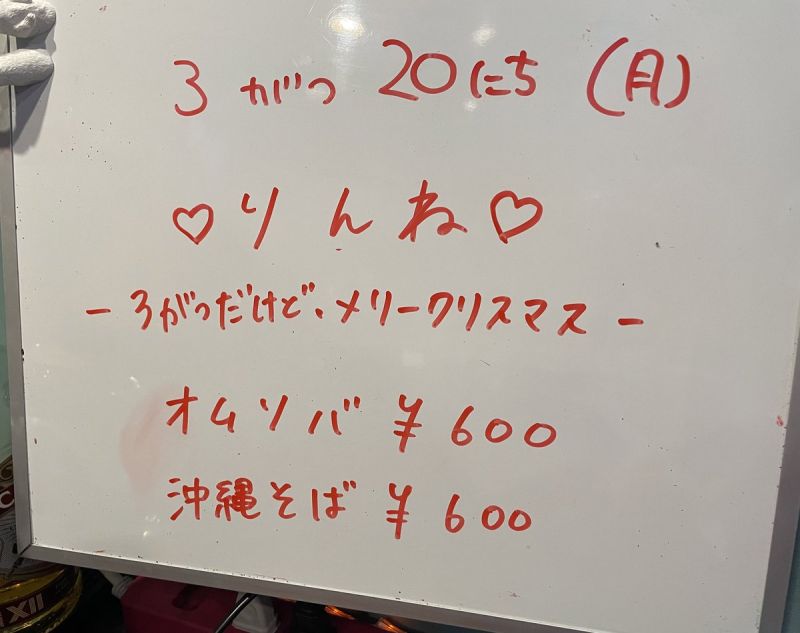 3がつ20にち(月)
♡りんね♡
-3がつだけど、メリークリスマス-
オムソバ¥600
沖縄そば¥600
XII